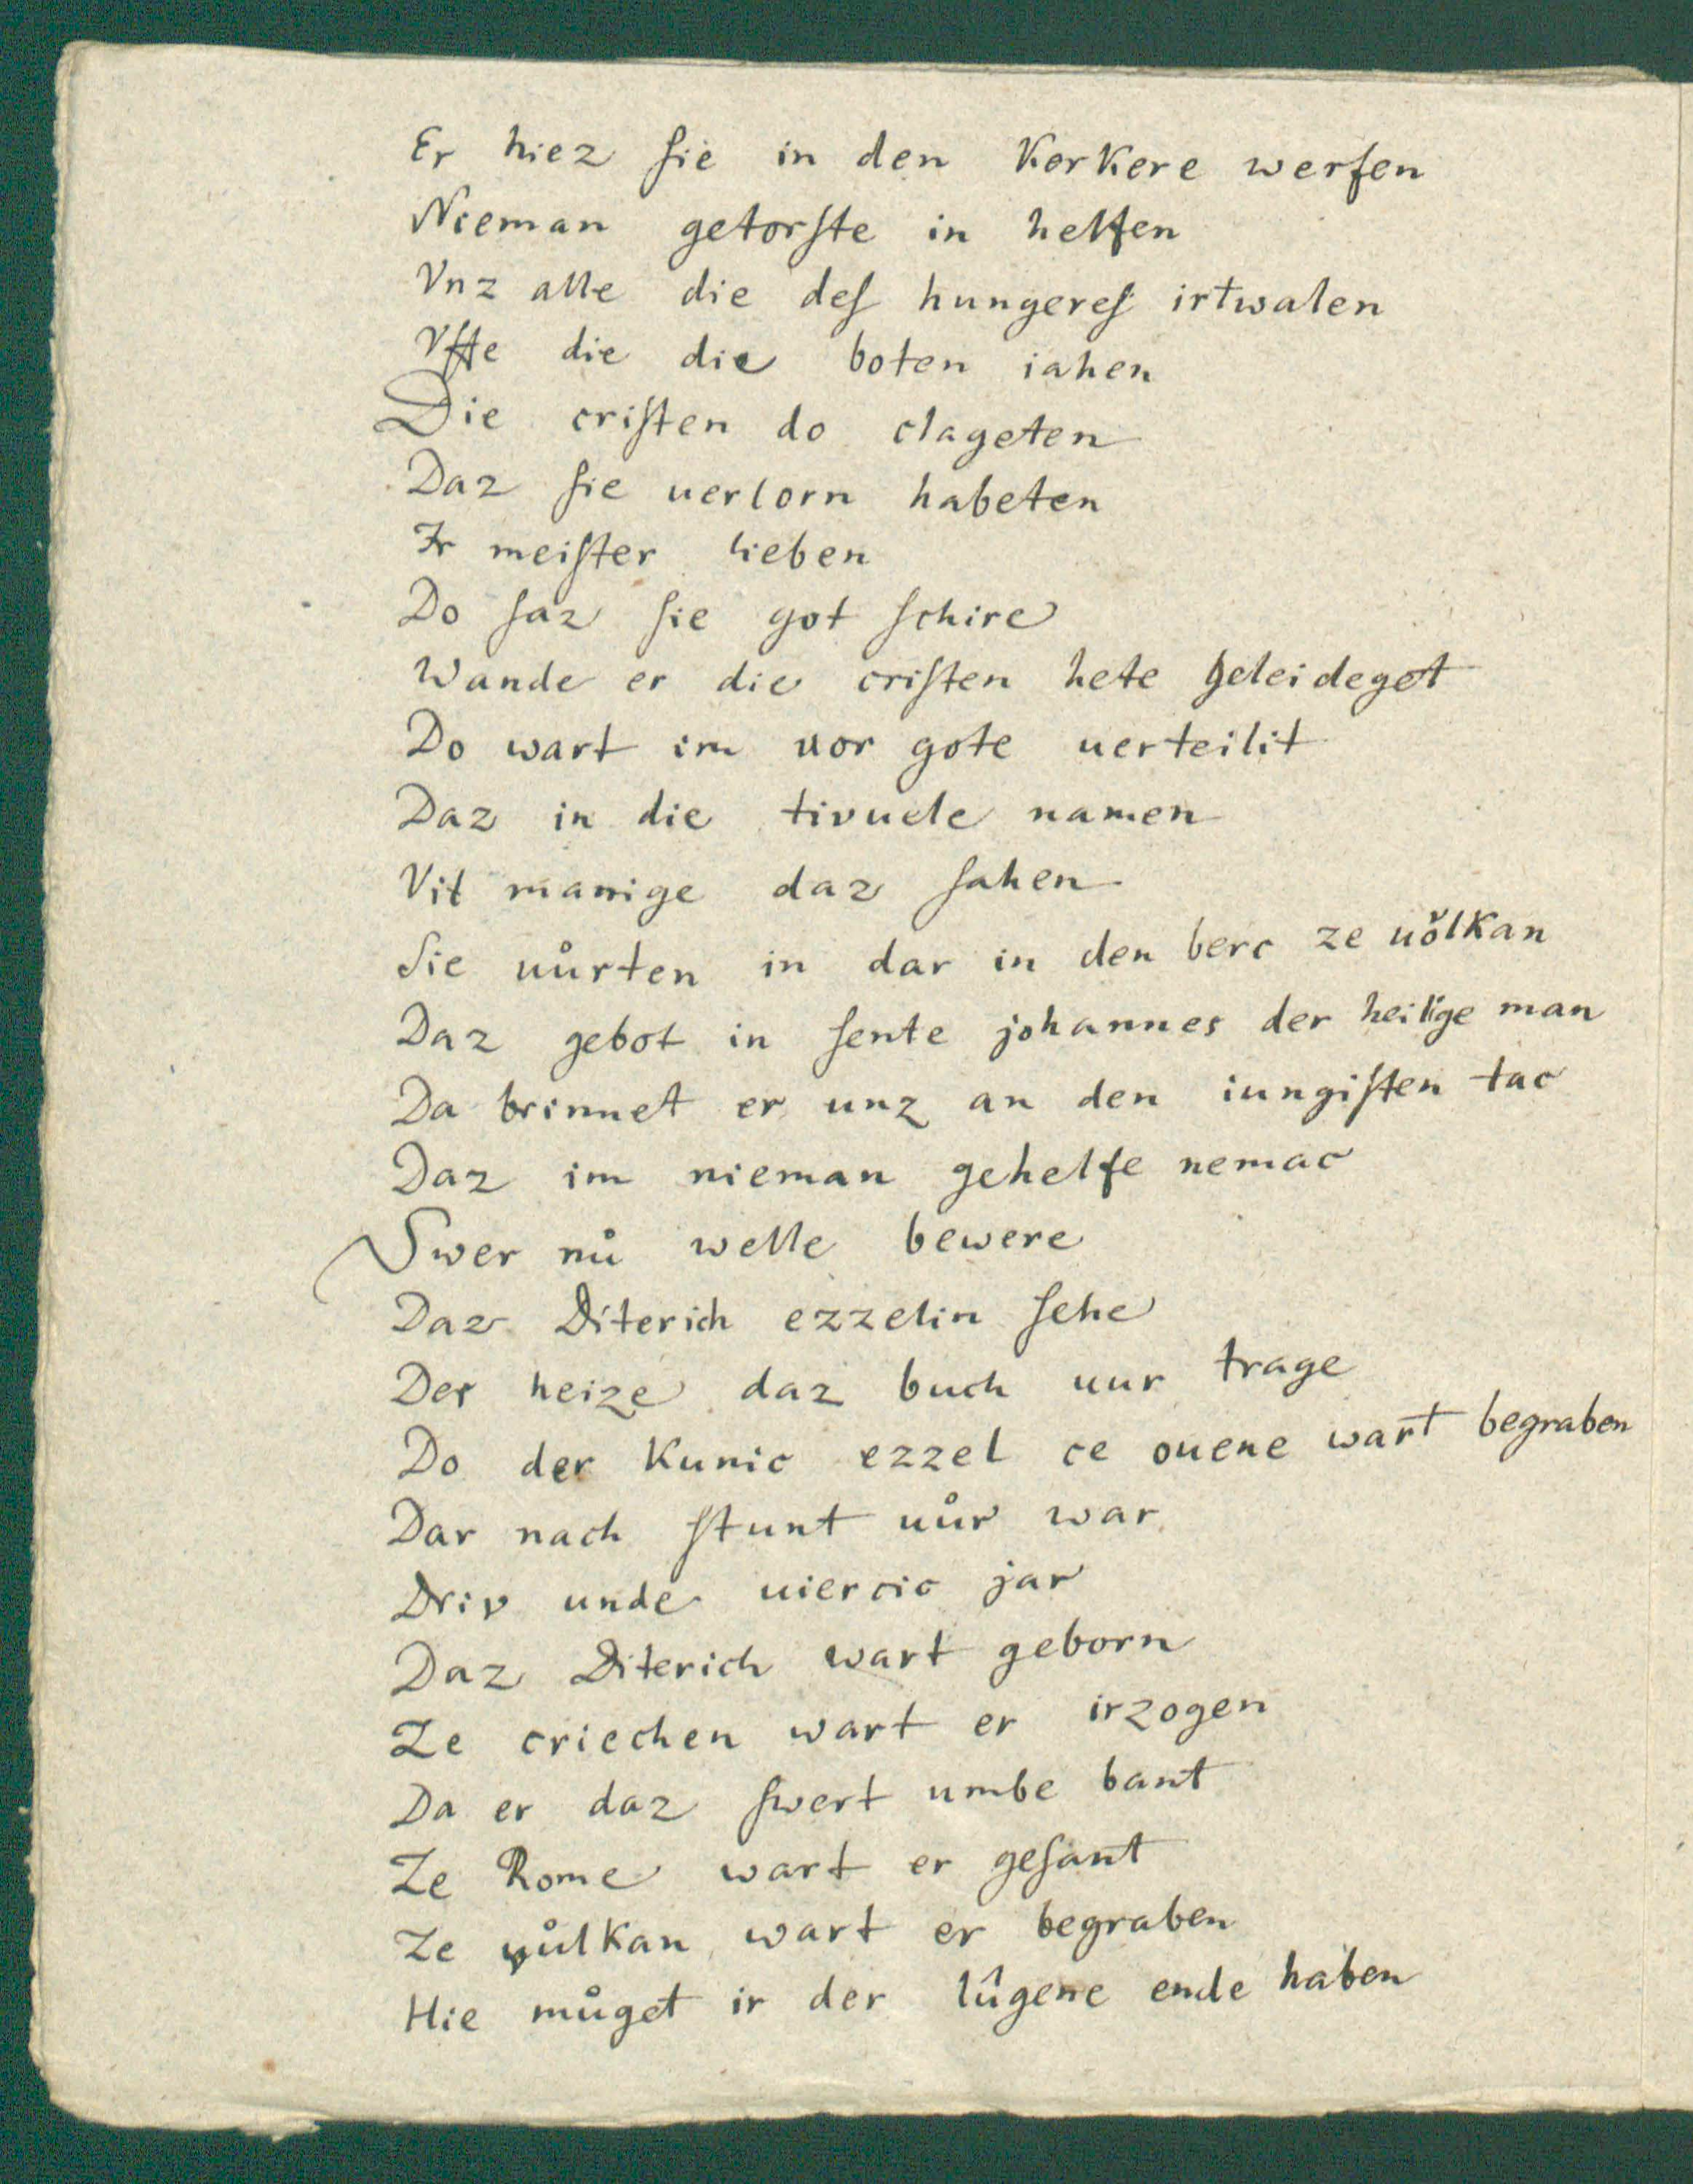 Er hiez ſie in den Kerkere werfen
Nieman getorſte in helfen
Vnz alle die deſ hungereſ irtwalen
Vffe die die boten iahen
Die criſten do clageten
Daz ſie uerlorn habeten
Ir meiſter lieben
Do ſaz ſie got ſchire
Wande er die criſten hete geleideget
Do wart im uor gote uerteilit
Daz in die tivuele namen
Vil manige daz ſahen
Sie uůrten in dar in den berc ze uǒlkan
Daz gebot in ſente johannes der heilige man
Da brinnet er unz an den iungiſten tac
Daz im nieman gehelfe nemac
Swer nů welle bewere
Daz Diterich ezzelin ſehe
Der heize daz buch uur trage
Do der Kunic ezzel ce ouene wart begraben
Dar nach ſtunt uůr war
Driv unde uiercic jar
Daz Diterich wart geborn
Ze criechen wart er irzogen
Da er daz ſwert umbe bant
Ze Rome wart er geſant
Ze vůlkan wart er begraben
Hie můget ir der lûgene ende haben